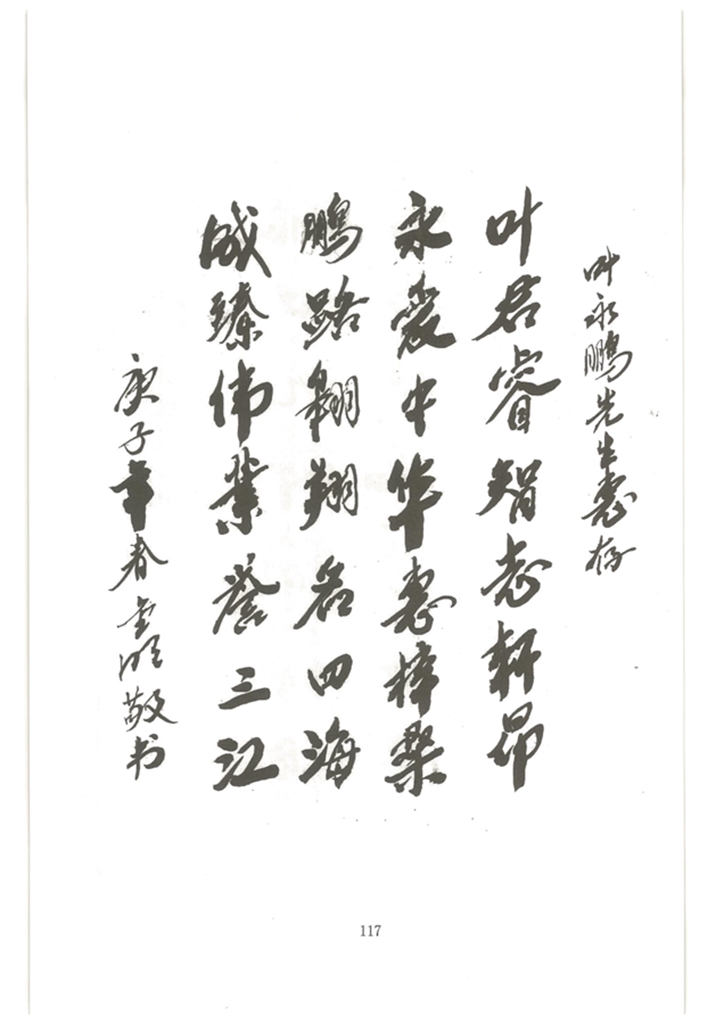 叶永鹏先生惠存
叶君睿智志轩昂
永爱中华惠梓桑
鹏路翱翔名四海
成臻伟业誉三江
庚子年春 敬书
117